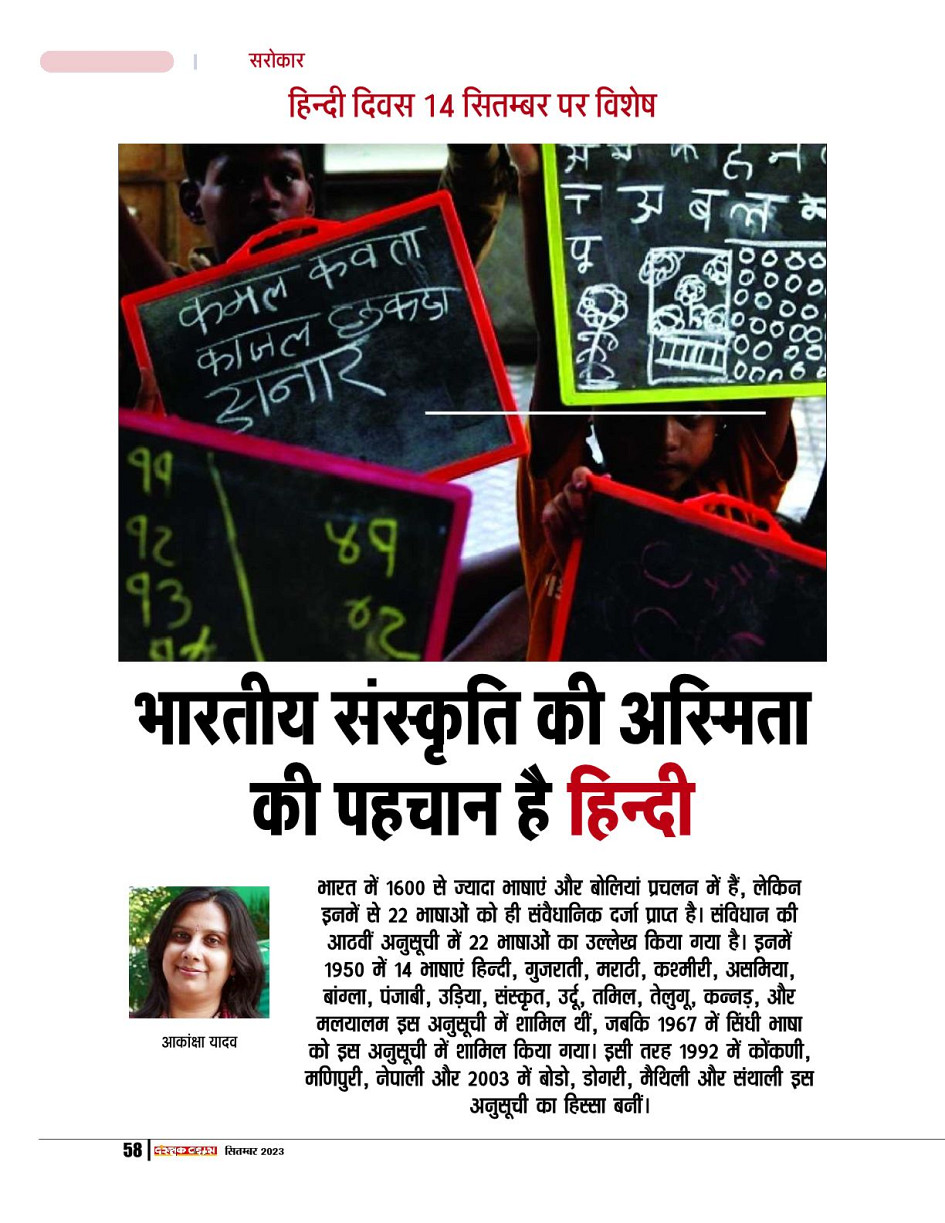 सरोकार
हिन्दी दिवस 14 सितम्बर पर विशेष
कमल कवता
काजल छकडा
अनार
अ ब ल
प्
११
१२
१३
४१
४२
भारतीय संस्कृति की अस्मिता
की पहचान है हिन्दी
भारत में 1600 से ज्यादा भाषाएं और बोलियां प्रचलन में हैं, लेकिन
इनमें से 22 भाषाओं को ही संवैधानिक दर्जा प्राप्त है। संविधान की
आठवीं अनुसूची में 22 भाषाओं का उल्लेख किया गया है। इनमें
1950 में 14 भाषाएं हिन्दी, गुजराती, मराठी, कश्मीरी, असमिया,
बांग्ला, पंजाबी, उड़िया, संस्कृत, उर्दू, तमिल, तेलुगू, कन्नड़, और
मलयालम इस अनुसूची में शामिल थीं, जबकि 1967 में सिंधी भाषा
को इस अनुसूची में शामिल किया गया। इसी तरह 1992 में कोंकणी,
मणिपुरी, नेपाली और 2003 में बोडो, डोगरी, मैथिली और संथाली इस
अनुसूची का हिस्सा बनीं।
आकांक्षा यादव
58
सितम्बर 2023